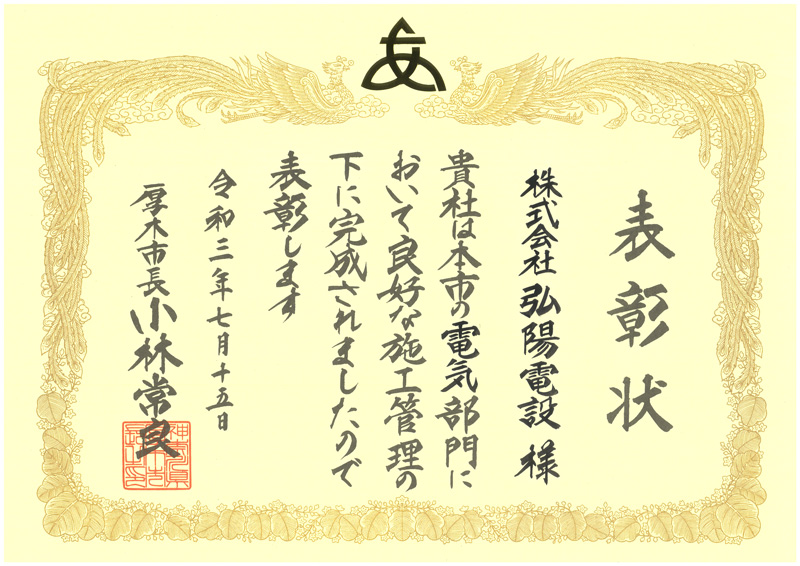 表彰状
株式会社 弘陽電設 様
貴社は本市の電気部門に
おいて良好な施工管理の
下に完成されましたので
表彰します
令和三年七月十五日
厚木市長 小林常良